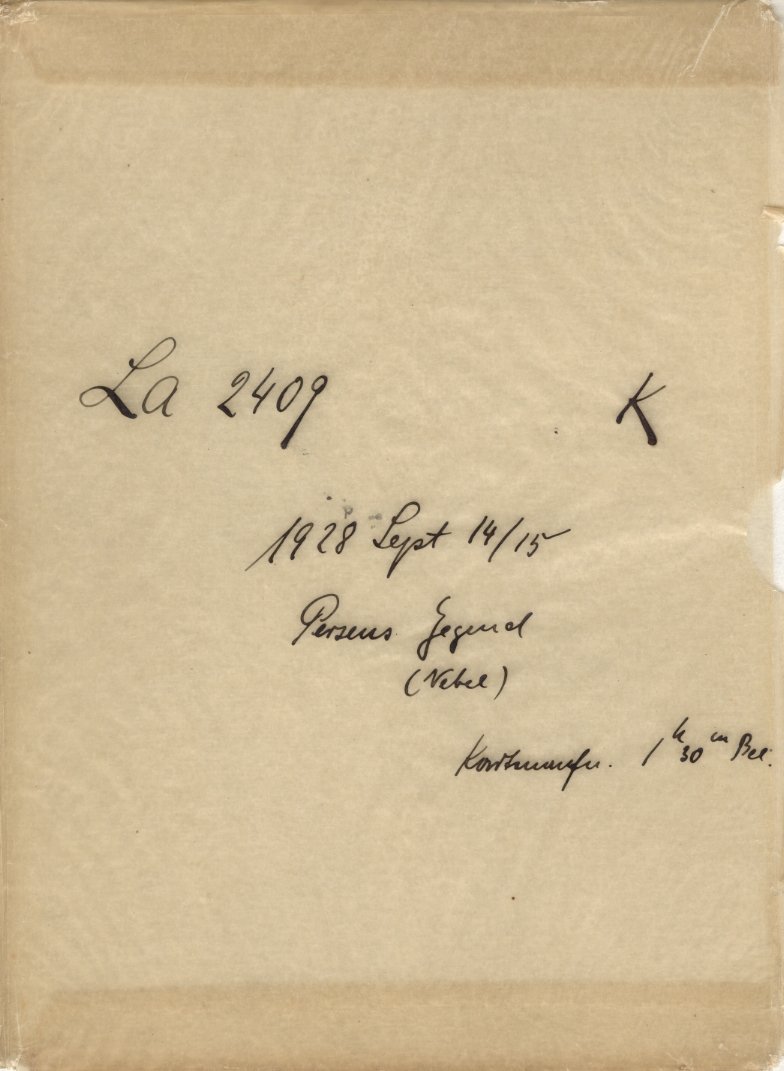 La 2409 K
1928 Sept 14/15
Perseus Gegend
(Nebel)
1ʰ 30ᵐ Bel.